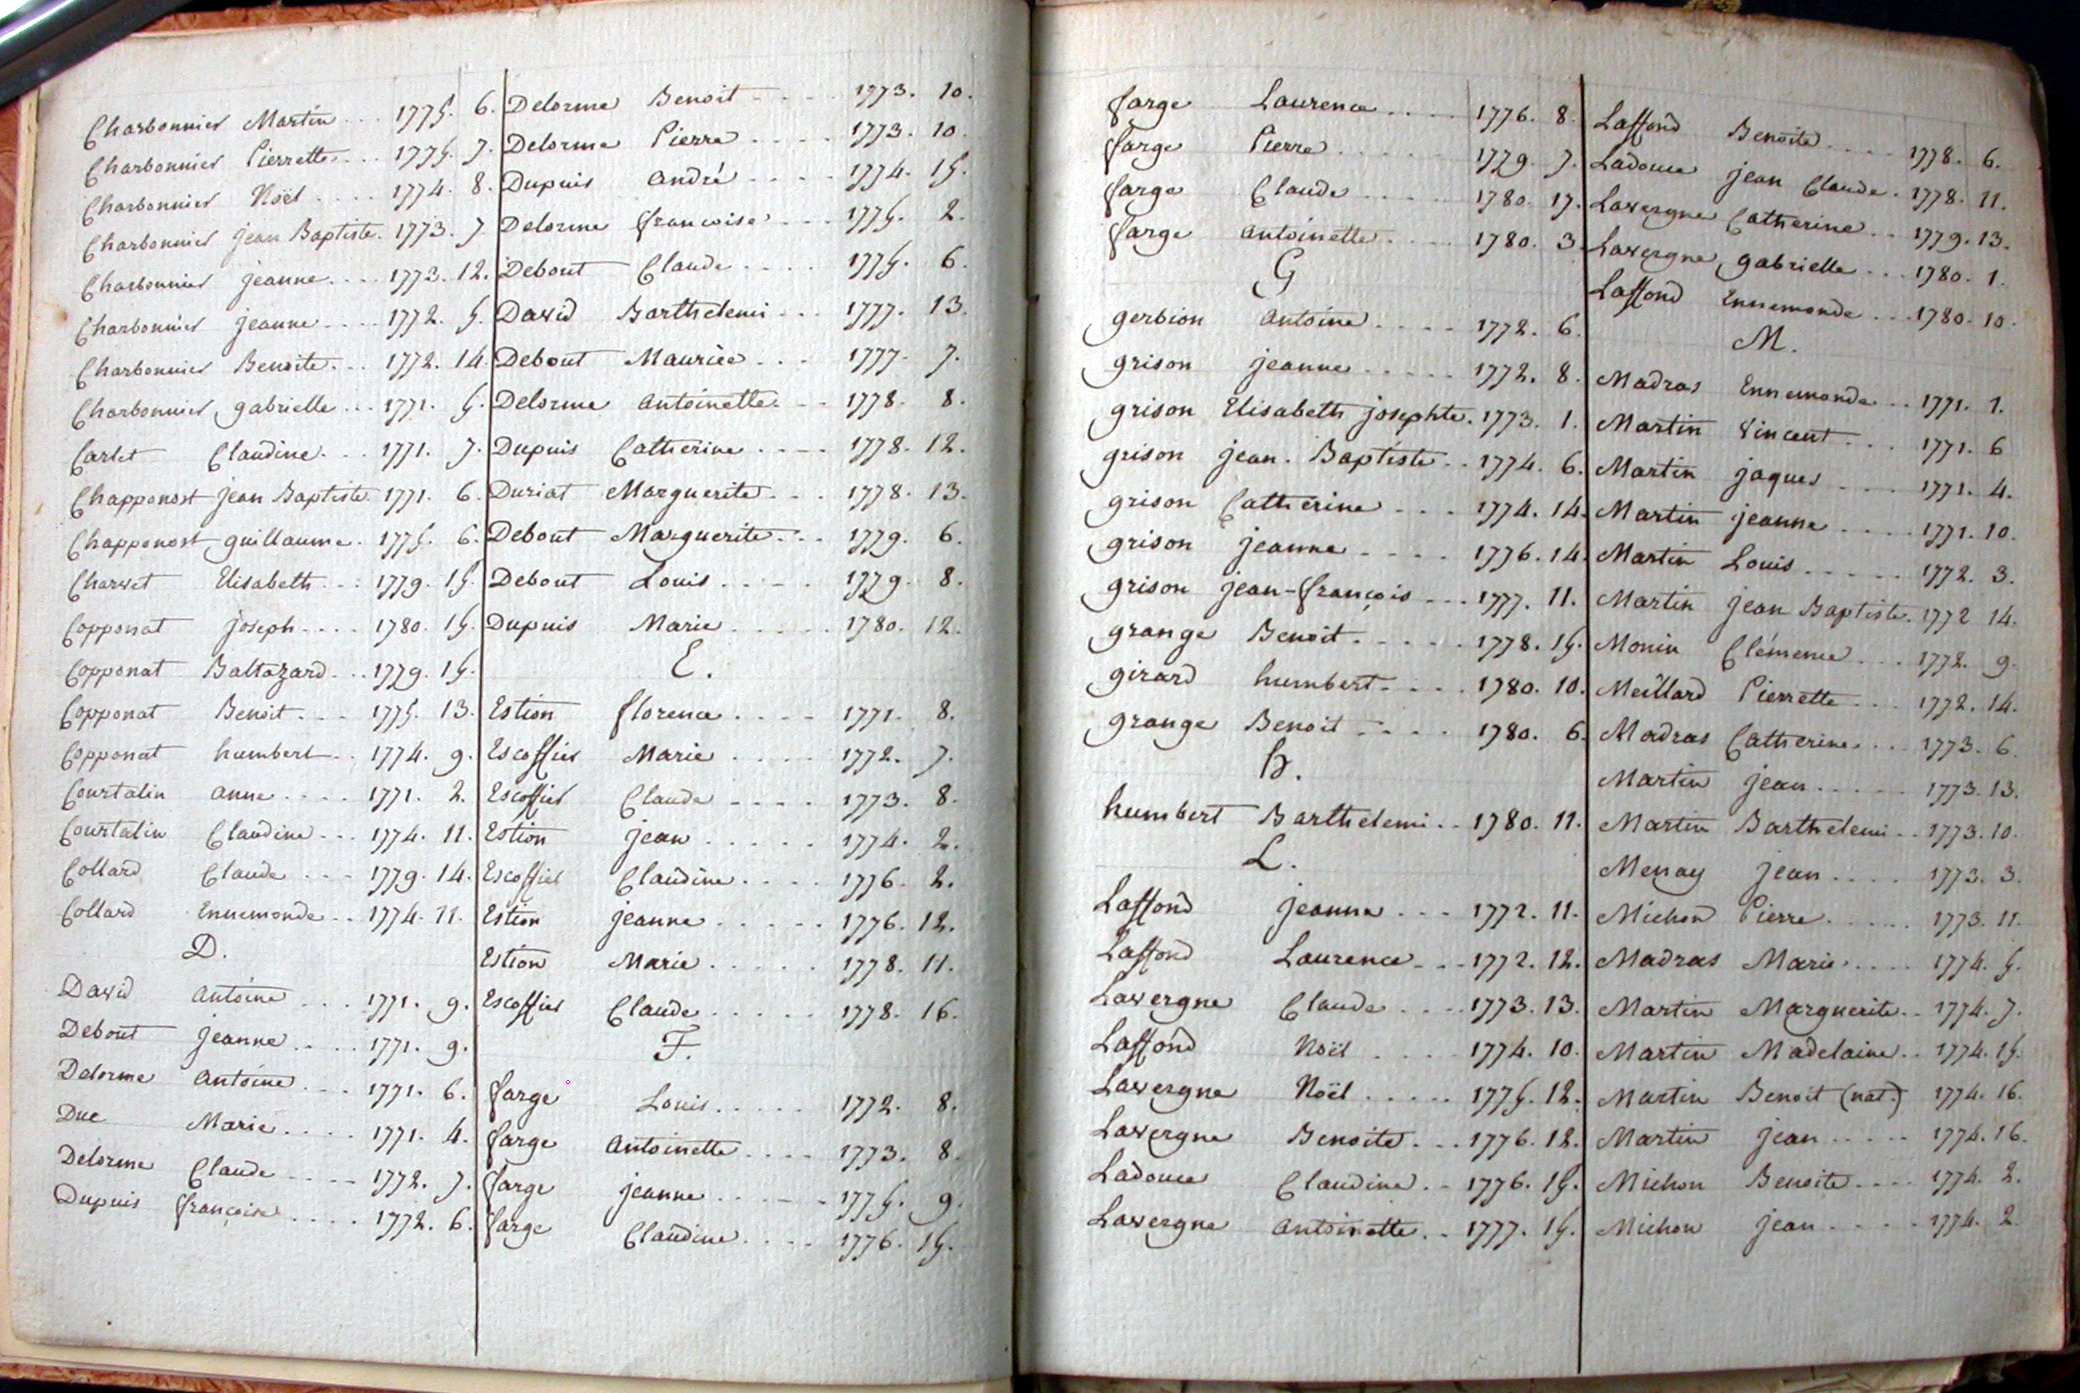 Charbonnier Martin ... 1775. 6.
Charbonnier Pierrette ... 1775. 7.
Charbonnier Noël .... 1774. 8.
Charbonnier jean Baptiste. 1773. 7
Charbonnier jeanne .... 1773. 12.
Charbonnier jeanne .... 1772. 5.
Charbonnier Benoite ... 1772. 14.
Charbonnier gabrielle ... 1771. 5.
Carlet Claudine ... 1771. 7.
Chapponost jean Baptiste 1771. 6.
Chapponost guillaume. 1775. 6.
Charvet Elisabeth ... 1779. 15.
Copponat joseph .... 1780. 15.
Copponat Baltazard ... 1779. 15.
Copponat Benoit ... 1775. 13.
Copponat humbert .. 1774. 9.
Courtalin anne .... 1771. 2.
Courtalin Claudine ... 1774. 11.
Collard Claude ... 1779. 14.
Collard Ennemonde .. 1774. 11.
D.
David antoine ... 1771. 9.
Debout jeanne .... 1771. 9.
Delorme antoine ... 1771. 6.
Duc Marie .... 1771. 4.
Delorme Claude .... 1772. 7.
Dupuis françoise .... 1772. 6.
Delorme Benoit .... 1773. 10.
Delorme Pierre .... 1773. 10.
Dupuis andré .... 1774. 15.
Delorme francoise ... 1775. 2.
Debout Claude .... 1775. 6.
David Barthelemi ... 1777. 13.
Debout Maurice ... 1777. 7.
Delorme antoinette ... 1778. 8.
Dupuis Catherine .... 1778. 12.
Duriat Marguerite ... 1778. 13.
Debout Marguerite ... 1779. 6.
Debout Louis .... 1779. 8.
Dupuis Marie ..... 1780. 12.
E.
Estion florence .... 1771. 8.
Escoffier Marie .... 1772. 7.
Escoffier Claude .... 1773. 8.
Estion jean ..... 1774. 2.
Escoffier Claudine .... 1776. 2.
Estion jeanne ..... 1776. 12.
Estion Marie ..... 1778. 11.
Escoffier Claude ..... 1778. 16.
F.
farge Louis ..... 1772. 8.
farge antoinette .... 1773. 8.
farge jeanne ..... 1775. 9.
farge Claudine .... 1776. 15.
farge Laurence .... 1776. 8.
farge Pierre ..... 1779. 7.
farge Claude ..... 1780. 17.
farge antoinette .... 1780. 3.
G
gerbion antoine .... 1772. 6.
grison jeanne ..... 1772. 8.
grison Elisabeth josephte. 1773. 1.
grison jean. Baptiste .. 1774. 6.
grison Catherine ... 1774. 14.
grison jeanne .... 1776. 14.
grison jean-françois ... 1777. 11.
grange Benoit ..... 1778. 15.
girard humbert .... 1780. 10.
grange Benoit .... 1780. 6.
h.
humbert Barthelemi .. 1780. 11.
L.
Laffond jeanne ... 1772. 11.
Laffond Laurence ... 1772. 12.
Lavergne Claude .... 1773. 13.
Laffond Noël .... 1774. 10.
Lavergne Noël ..... 1775. 12.
Lavergne Benoite ... 1776. 12.
Ladouce Claudine .. 1776. 15.
Lavergne antoinette .. 1777. 15.
Laffond Benoite .... 1778. 6.
Ladouce jean Claude . 1778. 11.
Lavergne Catherine .. 1779. 13.
Lavergne gabrielle ... 1780. 1.
Laffond Ennemonde .. 1780. 10.
M.
Madras Ennemonde .. 1771. 1.
Martin Vincent ... 1771. 6
Martin jaques .... 1771. 4.
Martin jeanne .... 1771. 10.
Martin Louis ..... 1772. 3.
Martin jean Baptiste. 1772 14.
Monin Clémence ... 1772. 9.
Meillard Pierrette ... 1772. 14.
Madras Catherine ... 1773. 6.
Martin jean ..... 1773. 13.
Martin Barthelemi .. 1773. 10.
Menay jean .... 1773. 3.
Michon Pierre ..... 1773. 11.
Madras Marie .... 1774. 5.
Martin Marguerite .. 1774. 7.
Martin Madelaine .. 1774. 15.
Martin Benoit (nat.) 1774. 16.
Martin jean ..... 1774. 16.
Michon Benoite .... 1774. 2.
Michon jean ..... 1774. 2.